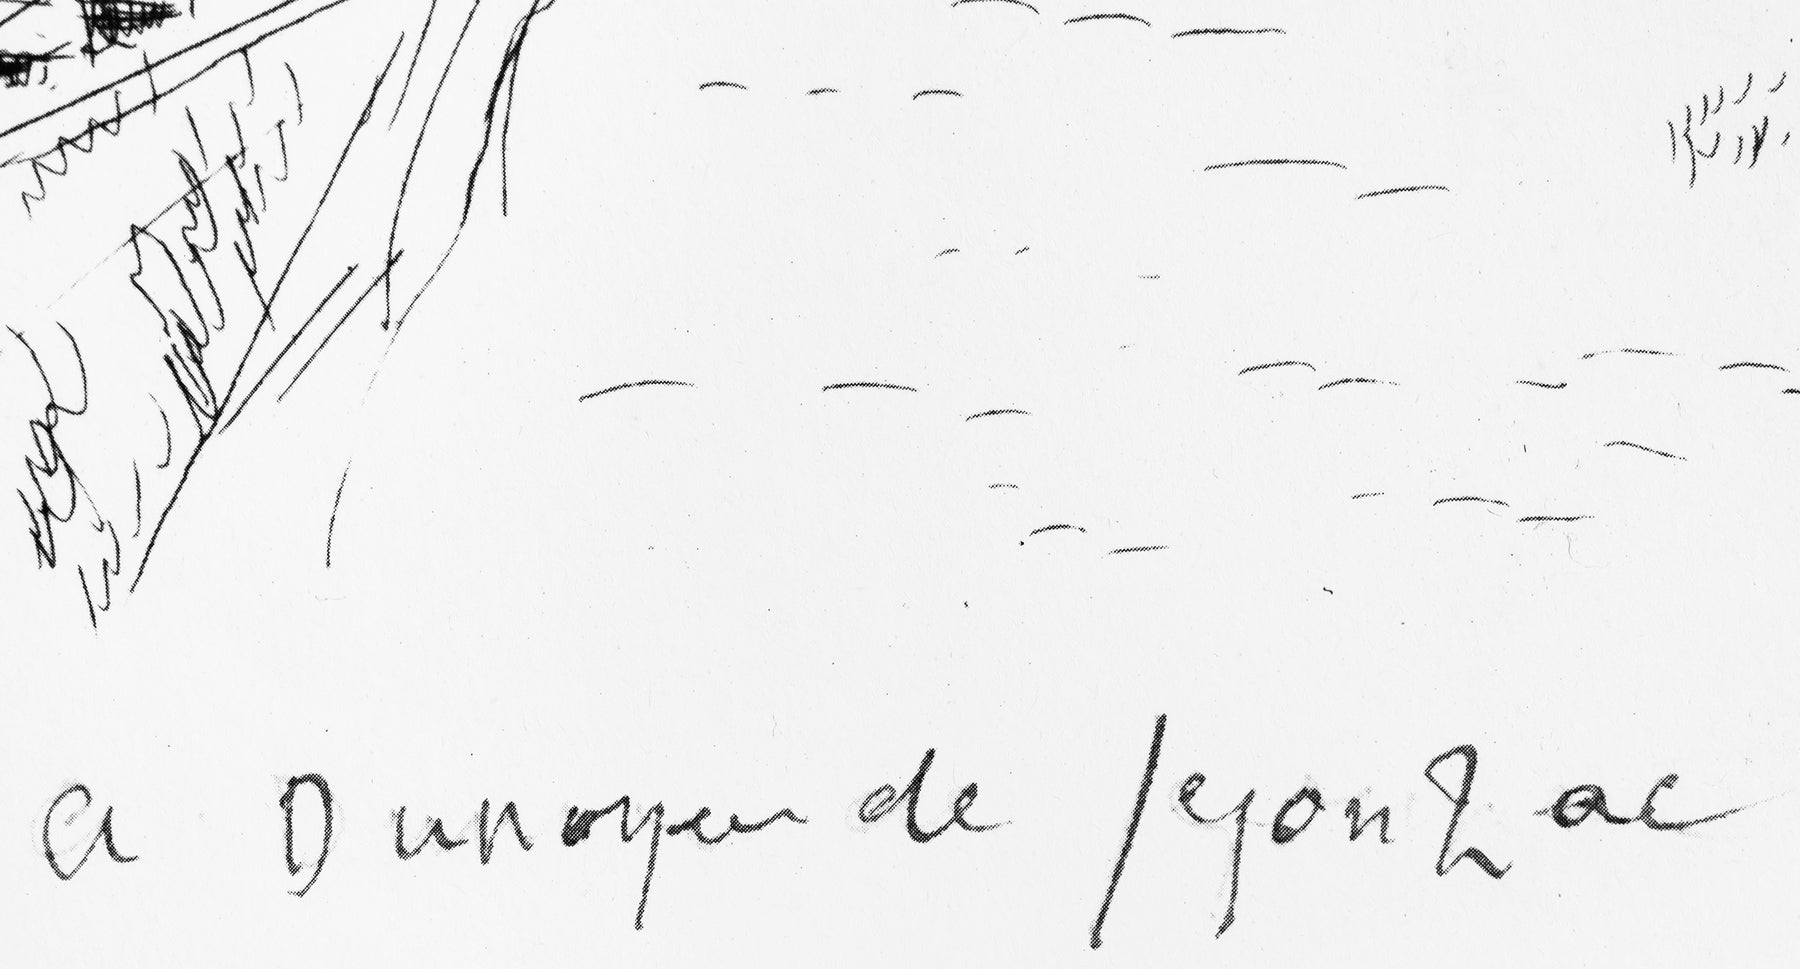 a Dunoyer de Segonzac